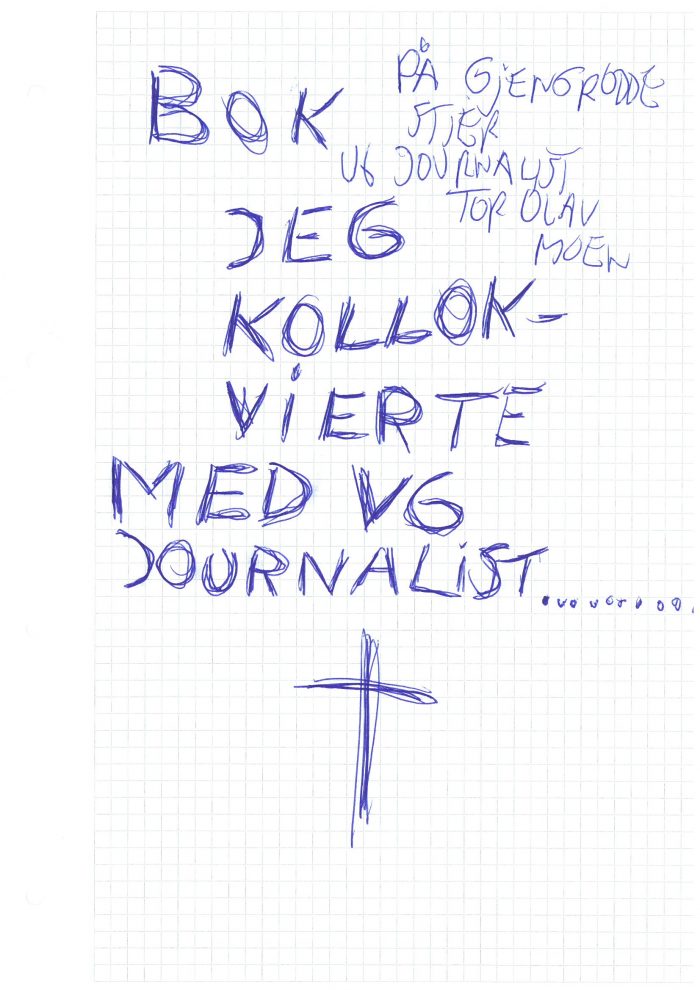 BOK
PÅ GJENGRODDE
STIER
VG JOURNALIST
TOR OLAV
MOEN
JEG
KOLLOK-
ViERTE
MED VG
JOURNALiST..........